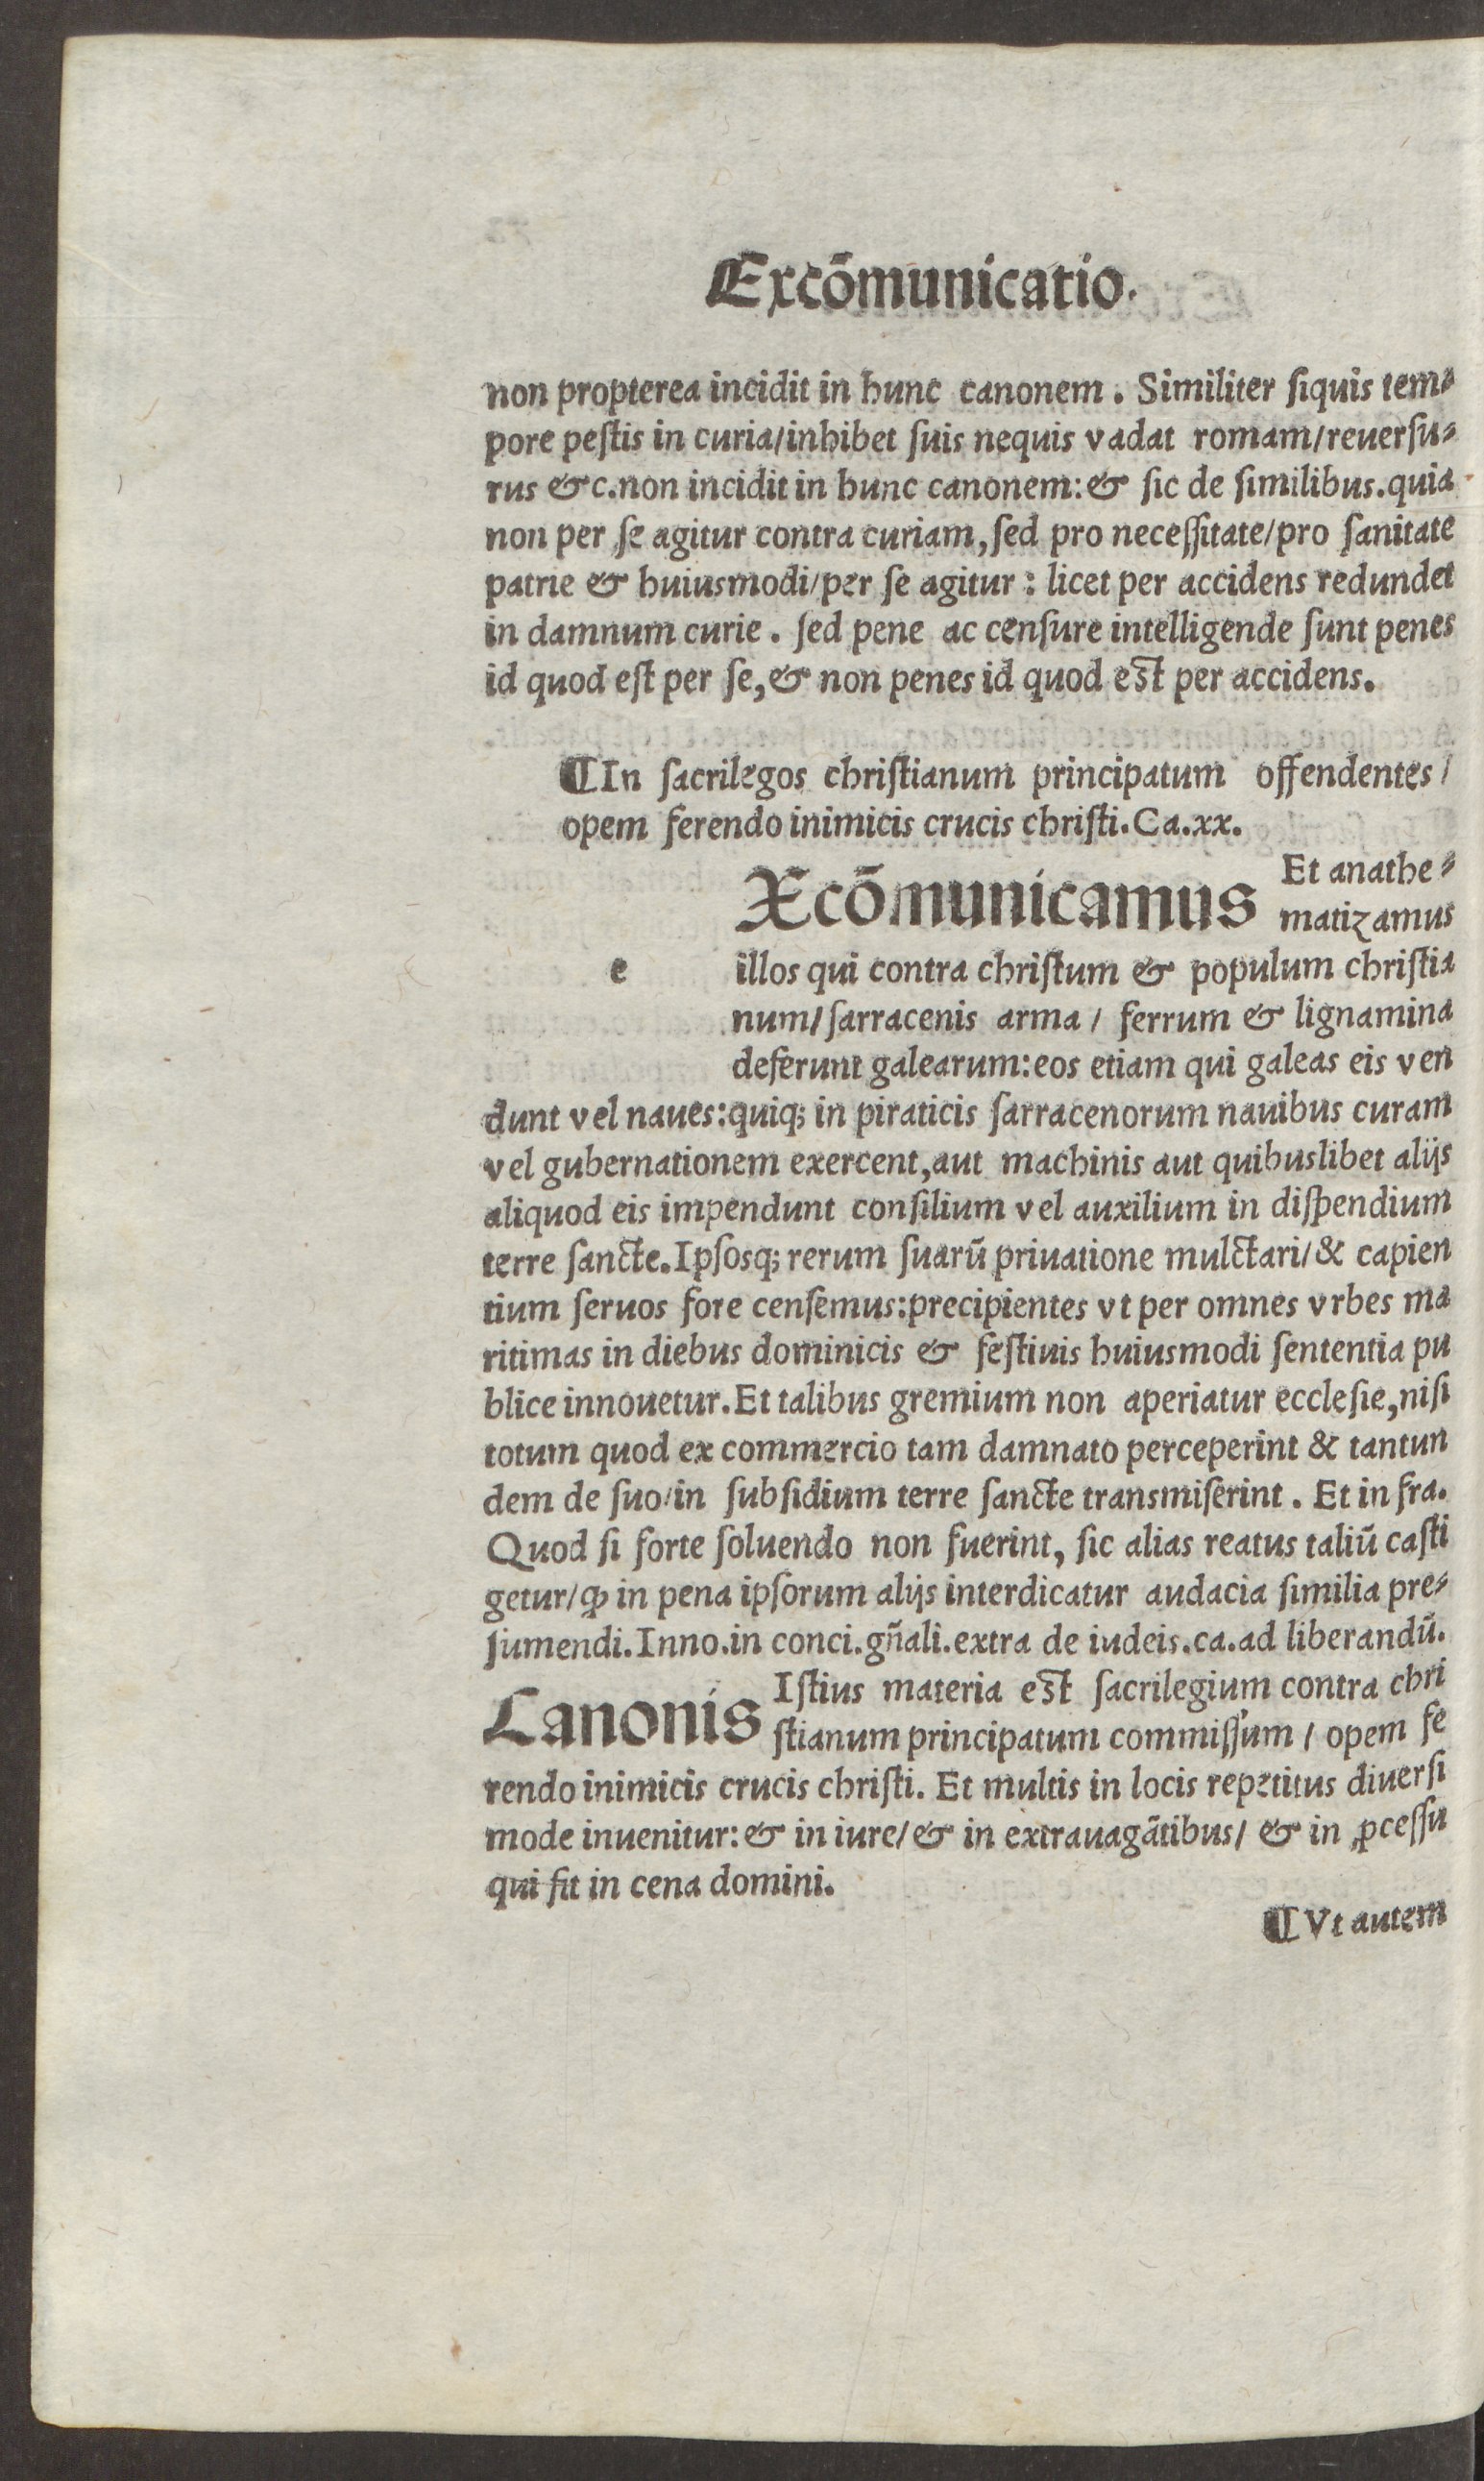 Excōmunicatio.
non propterea incidit in hunc canonem. Similiter ſiquis tem⸗
pore peſtis in curia/inhibet ſuis nequis vadat romam/reuerſu⸗
rus &c.non incidit in hunc canonem:& ſic de ſimilibus.quia
non per ſe agitur contra curiam,ſed pro neceſſitate/pro ſanitate
patrie & huiusmodi/per ſe agitur: licet per accidens redundet
in damnum curie. ſed pene ac cenſure intelligende ſunt penes
id quod eſt per ſe,& non penes id quod eſt per accidens.
¶In ſacrilegos chriſtianum principatum offendentes/
opem ferendo inimicis crucis chriſti.Ca.xx.
Xcōmunicamus Et anathe⸗
matizamus
e illos qui contra chriſtum & populum chriſtia
num/ſarracenis arma/ ferrum & lignamina
deferunt galearum:eos etiam qui galeas eis ven
dunt vel naues:quiq; in piraticis ſarracenorum nauibus curam
vel gubernationem exercent,aut machinis aut quibuslibet alijs
aliquod eis impendunt conſilium vel auxilium in diſpendium
terre ſancte.Ipſosq; rerum ſuarū priuatione mulctari/& capien
tium ſeruos fore cenſemus:precipientes vt per omnes vrbes ma
ritimas in diebus dominicis & feſtiuis huiusmodi ſententia pu
blice innouetur.Et talibus gremium non aperiatur eccleſie,niſi
totum quod ex commercio tam damnato perceperint & tantun
dem de ſuo/in ſubſidium terre ſancte transmiſerint. Et infra.
Quod ſi forte ſoluendo non fuerint, ſic alias reatus taliū caſti
getur/ꝙ in pena ipſorum alijs interdicatur audacia ſimilia pre⸗
ſumendi.Inno.in conci.gn̄ali.extra de iudeis.ca.ad liberandū.
Canonis Iſtius materia eſt ſacrilegium contra chri
ſtianum principatum commiſſum/ opem fe
rendo inimicis crucis chriſti. Et multis in locis repetitus diuerſi
mode inuenitur:& in iure/& in extrauagātibus/ & in ꝓceſſu
qui fit in cena domini.
¶Vt autem